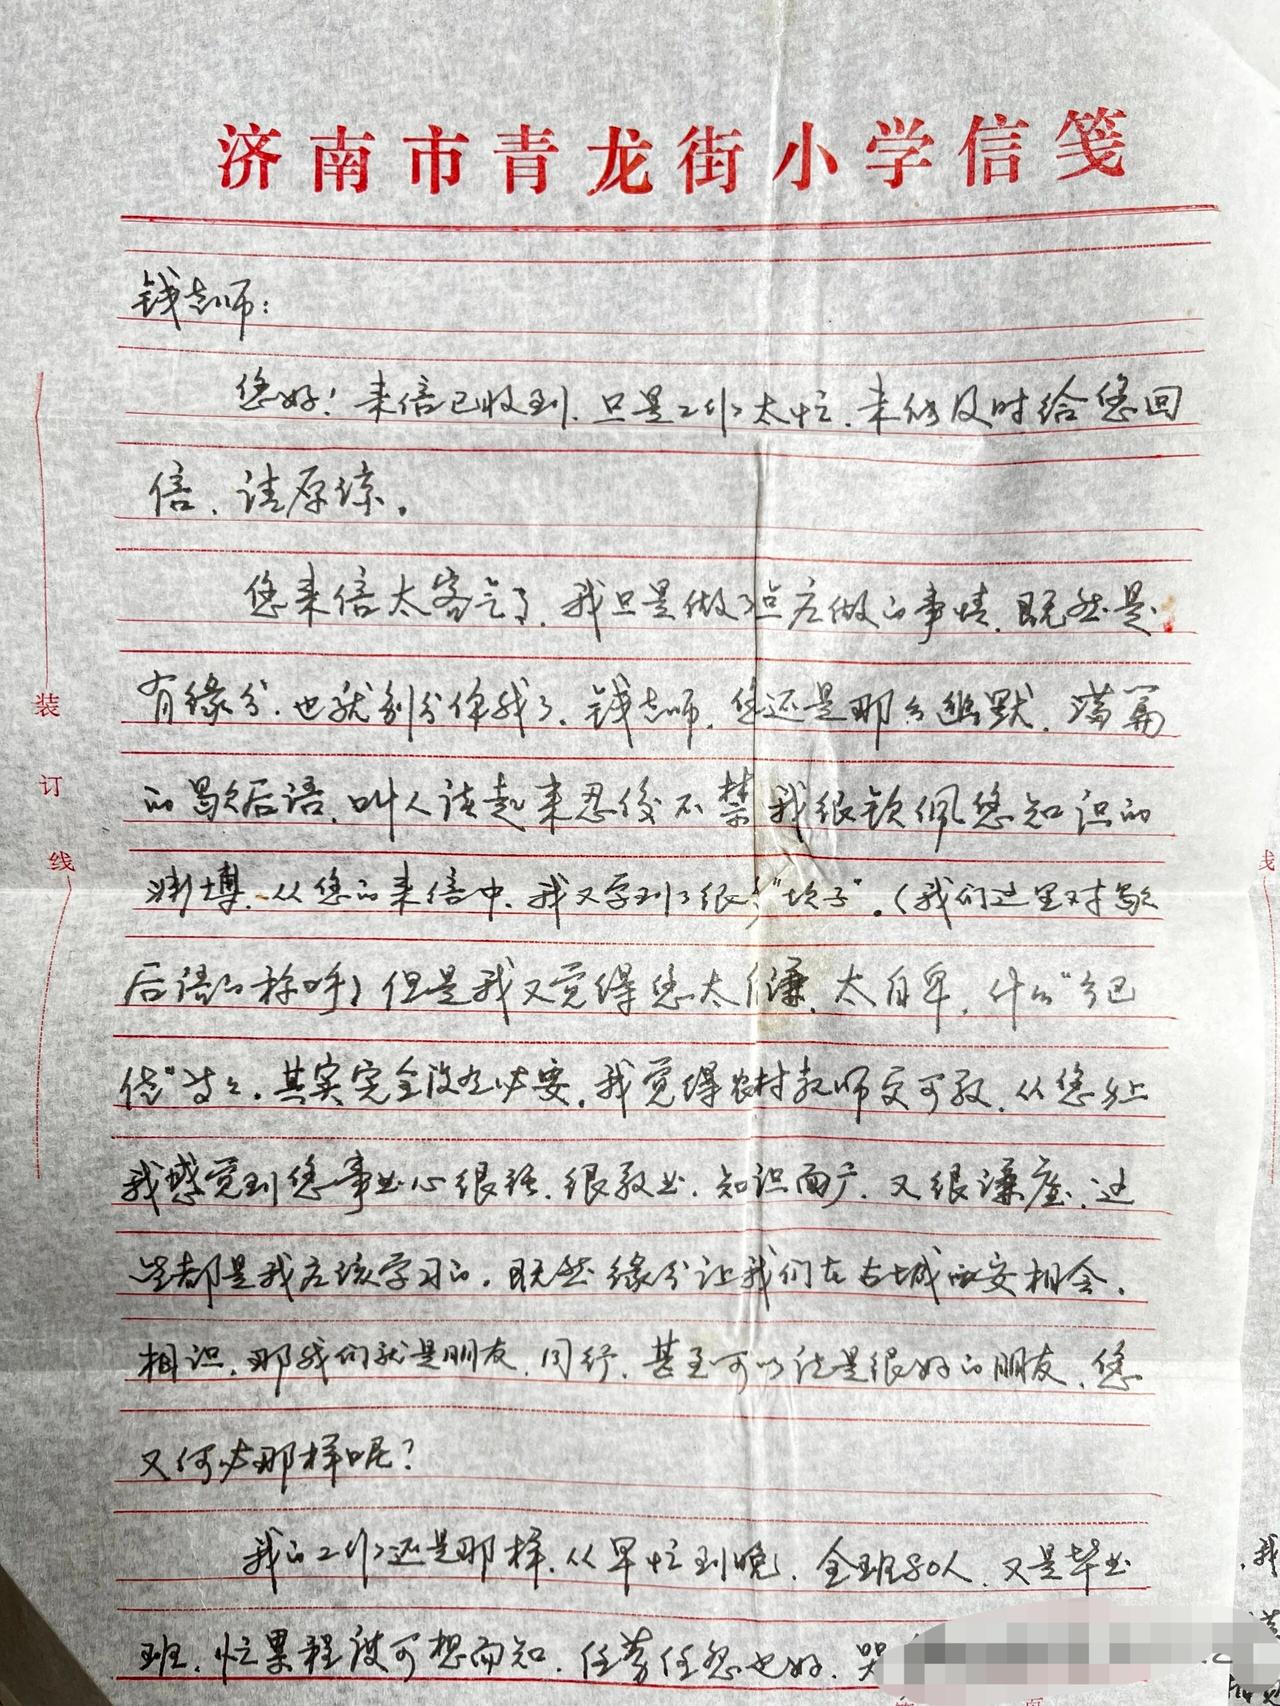 济南市青龙街小学信笺
钱老师：
您好！来信已收到，只是工作太忙，未能及时给您回
信，请原谅。
您来信太客气了，我只是做了点应做的事情，既然是
有缘分，也就别分你我了，钱老师，您还是那么幽默，满篇
的歇后语，叫人读起来忍俊不禁，我很钦佩您知识的
渊博，从您的来信中，我又学到了很多“坎子”。（我们这里对歇
后语的称呼）但是我又觉得您太谦，太自卑，什么“
”等等。其实完全没有必要，我觉得农村教师更可敬，从您身上
我感觉到您事业心很强，很敬业，知识面广，又很谦虚，这
些都是我应该学习的，既然缘分让我们在古城西安相会，
相识，那我们就是朋友，同行，甚至可以说是很好的朋友，您
又何必那样呢？
我的工作还是那样，从早忙到晚，全班80人，又是毕业
班，忙累程度可想而知，任劳任怨也好，
装
订
线
线
我